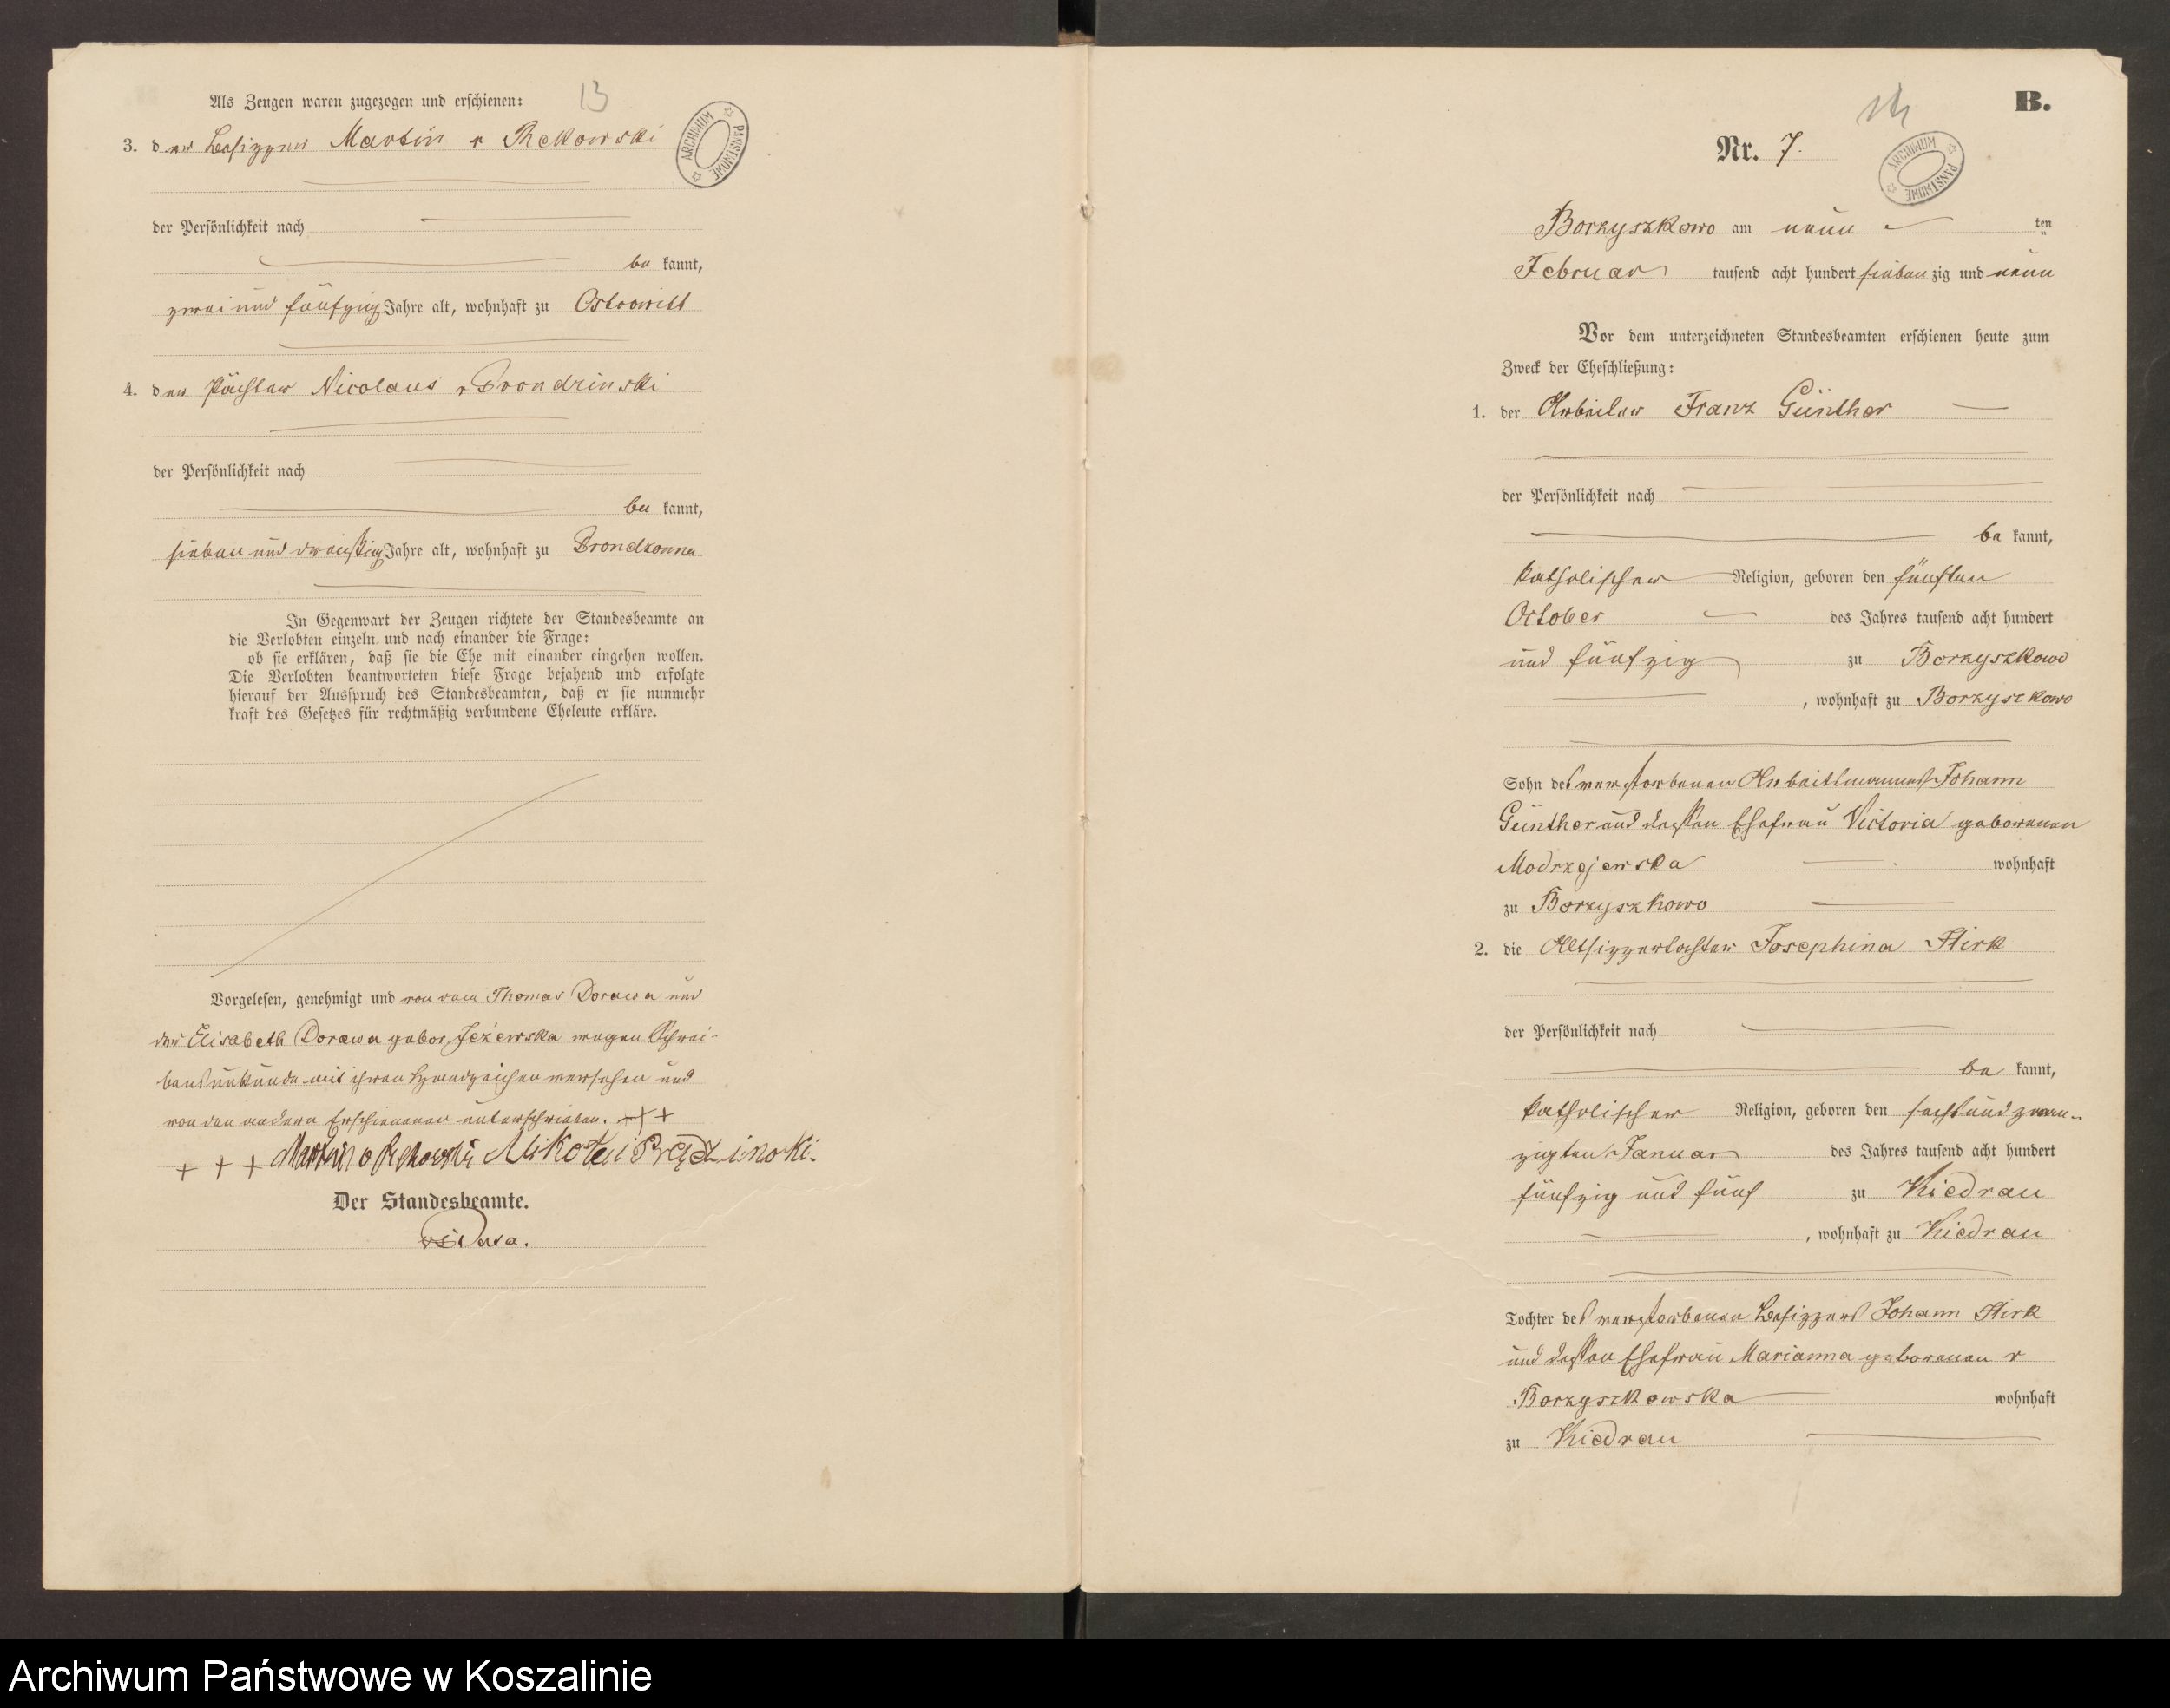 Als Zeugen waren zugezogen und erschienen: 13
3. der Besitzer Martin v Rekowski
ARCHIWUM PAŃSTWOWE
der Persönlichkeit nach
be kannt,
zwei und fünfzig Jahre alt, wohnhaft zu Ostrowitt
4. der Pächter Nicolaus v Prondzinski
der Persönlichkeit nach
be kannt,
sieben und dreißig Jahre alt, wohnhaft zu Prondzonna
In Gegenwart der Zeugen richtete der Standesbeamte an
die Verlobten einzeln und nach einander die Frage:
ob sie erklären, daß sie die Ehe mit einander eingehen wollen.
Die Verlobten beantworteten diese Frage bejahend und erfolgte
hierauf der Ausspruch des Standesbeamten, daß er sie nunmehr
kraft des Gesetzes für rechtmäßig verbundene Eheleute erkläre.
Vorgelesen, genehmigt und von dem Thomas Dorawa und
der Elisabeth Dorawa gebor Jeżewska wegen Schrei-
bensunkunde mit ihren Handzeichen versehen und
von den andern Erschienenen unterschrieben. +++
+ + + Martin v Rekowski Mikołai Prądzinski.
Der Standesbeamte.
B.
Nr. 7.
ARCHIWUM PAŃSTWOWE
Borzyszkowo am neun ten
Februar tausend acht hundert sieben zig und neun
Vor dem unterzeichneten Standesbeamten erschienen heute zum
Zweck der Eheschließung:
1. der Arbeiter Franz Günther
der Persönlichkeit nach
be kannt,
katholischer Religion, geboren den fünften
October des Jahres tausend acht hundert
und fünfzig zu Borzyszkowo
, wohnhaft zu Borzyszkowo
Sohn des verstorbenen Arbeitsmannes Johann
Günther und dessen Ehefrau Victoria geborenen
Modrzejewska wohnhaft
zu Borzyszkowo
2. die Altsitzertochter Josephina Stirk
der Persönlichkeit nach
be kannt,
katholischer Religion, geboren den sechsundzwan-
zigten Januar des Jahres tausend acht hundert
fünfzig und fünf zu Kiedrau
, wohnhaft zu Kiedrau
Tochter des verstorbenen Besitzers Johann Stirk
und dessen Ehefrau Marianna geborenen v
Borzyszkowska wohnhaft
zu Kiedrau
Archiwum Państwowe w Koszalinie